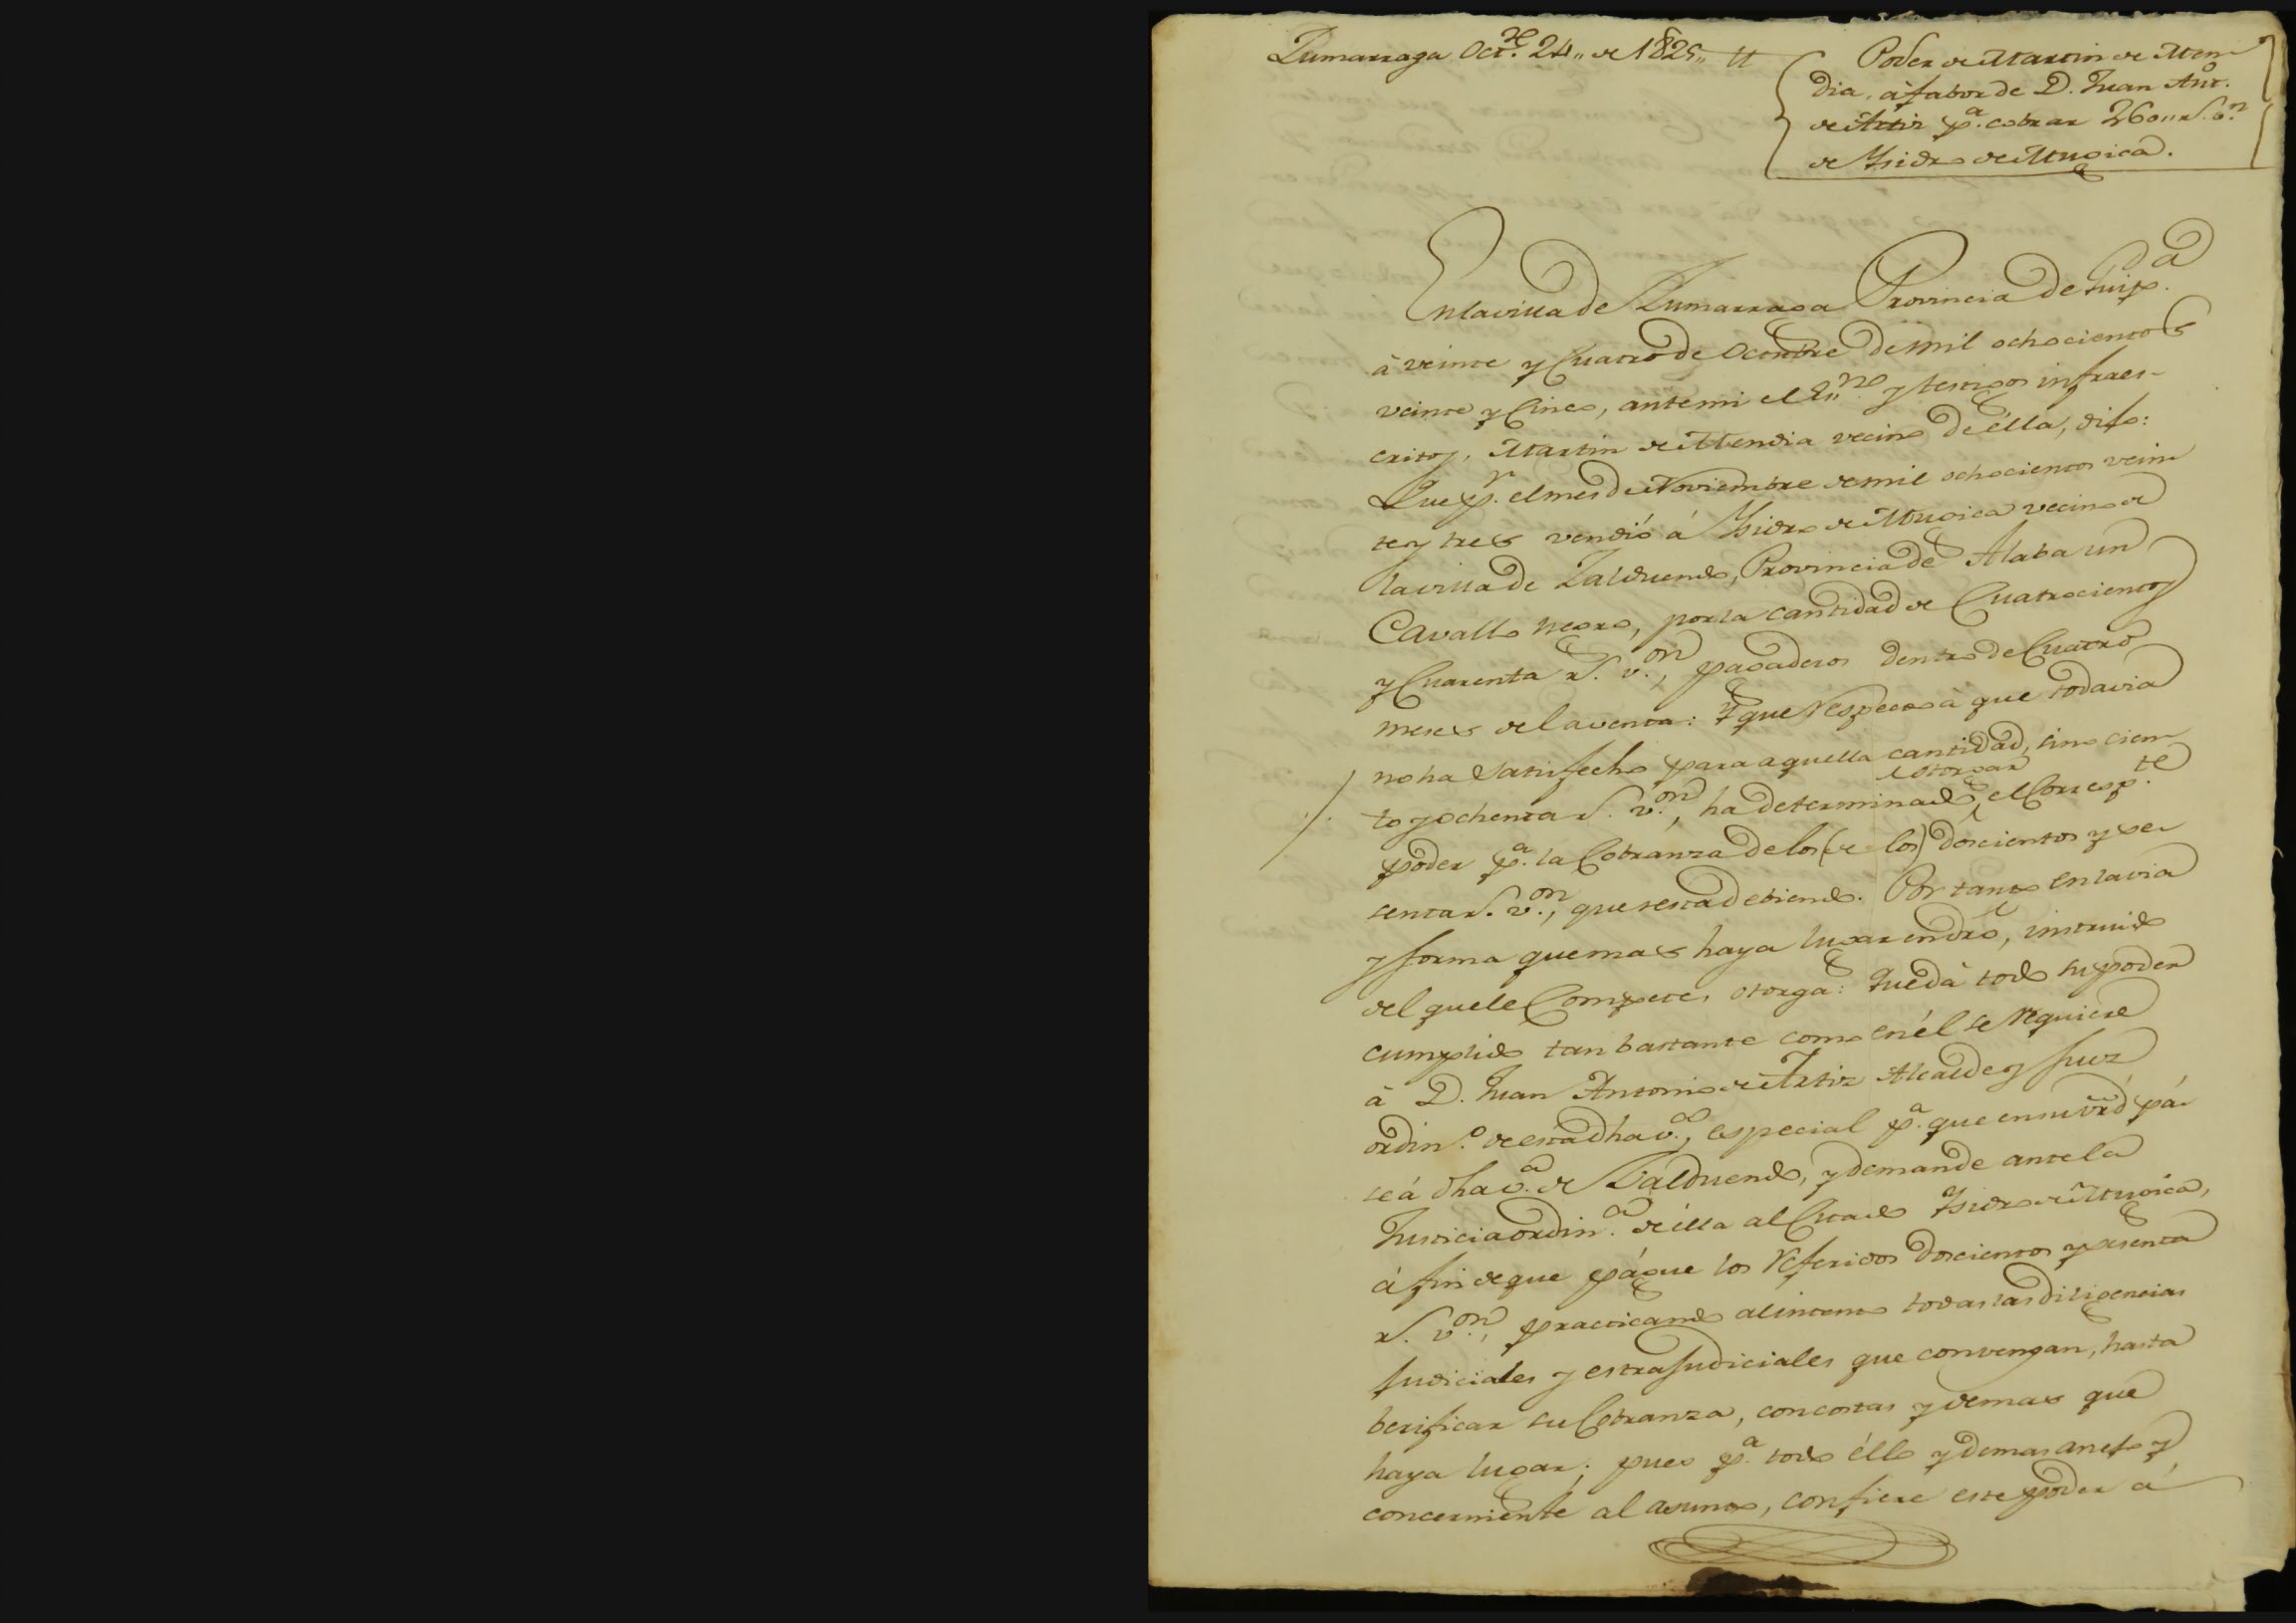 Zumarraga Oct.re 24,, de 1825,,
Poder de Martin de Men-
dia, à fabor de D. Juan Ant.o
de Artiz p.a cobrar 260,, r.s v.n
de Ysidro de Mugica.
En la villa de Zumarraga Provincia de Guip.a
à veinte y Cuatro de Octubre de mil ochocientos
veinte y Cinco, ante mi el Es.no y testigos infraes-
critos, Martin de Mendia vecino de élla, dijo:
Que p.r el mes de Noviembre de mil ochocientos vein-
te y tres vendió á Ysidro de Mugica vecino de
la villa de Zalduendo, Provincia de Alaba un
Cavallo negro, por la cantidad de Cuatrocientos
y Cuarenta r.s v.on, pagaderos dentro de Cuatro
meses de la venta: Y que respecto à que todavia
no ha satisfecho para aquella cantidad, sino cien-
to y ochenta r.s v.on, ha determinado otorgar el Corresp.te
poder p.a la Cobranza de los (de los) doscientos y se-
senta r.s v.on, que resta debiendo. Por tanto en la via
y forma que mas haya lugar en dró, instruido
del que le Compete, otorga: Que dà todo su poder
cumplido tan bastante como en él se requiere
à D. Juan Antonio de Artiz Alcalde y Juez
ordin.o de esta dha v.a, especial p.a que en su vrd pá-
se á dha v.a de Zalduendo, y demande ante la
Justicia ordin.a de élla al Citado Ysidro de Mugica,
á fin de que págue los referidos doscientos y sesenta
r.s v.on, practicando al intento todas las diligencias
Judiciales y estrajudiciales que convengan, hasta
berificar su Cobranza, con costas y demas que
haya lugar; pues p.a todo éllo y demas anejo y
concerniente al asunto, confiere este poder á